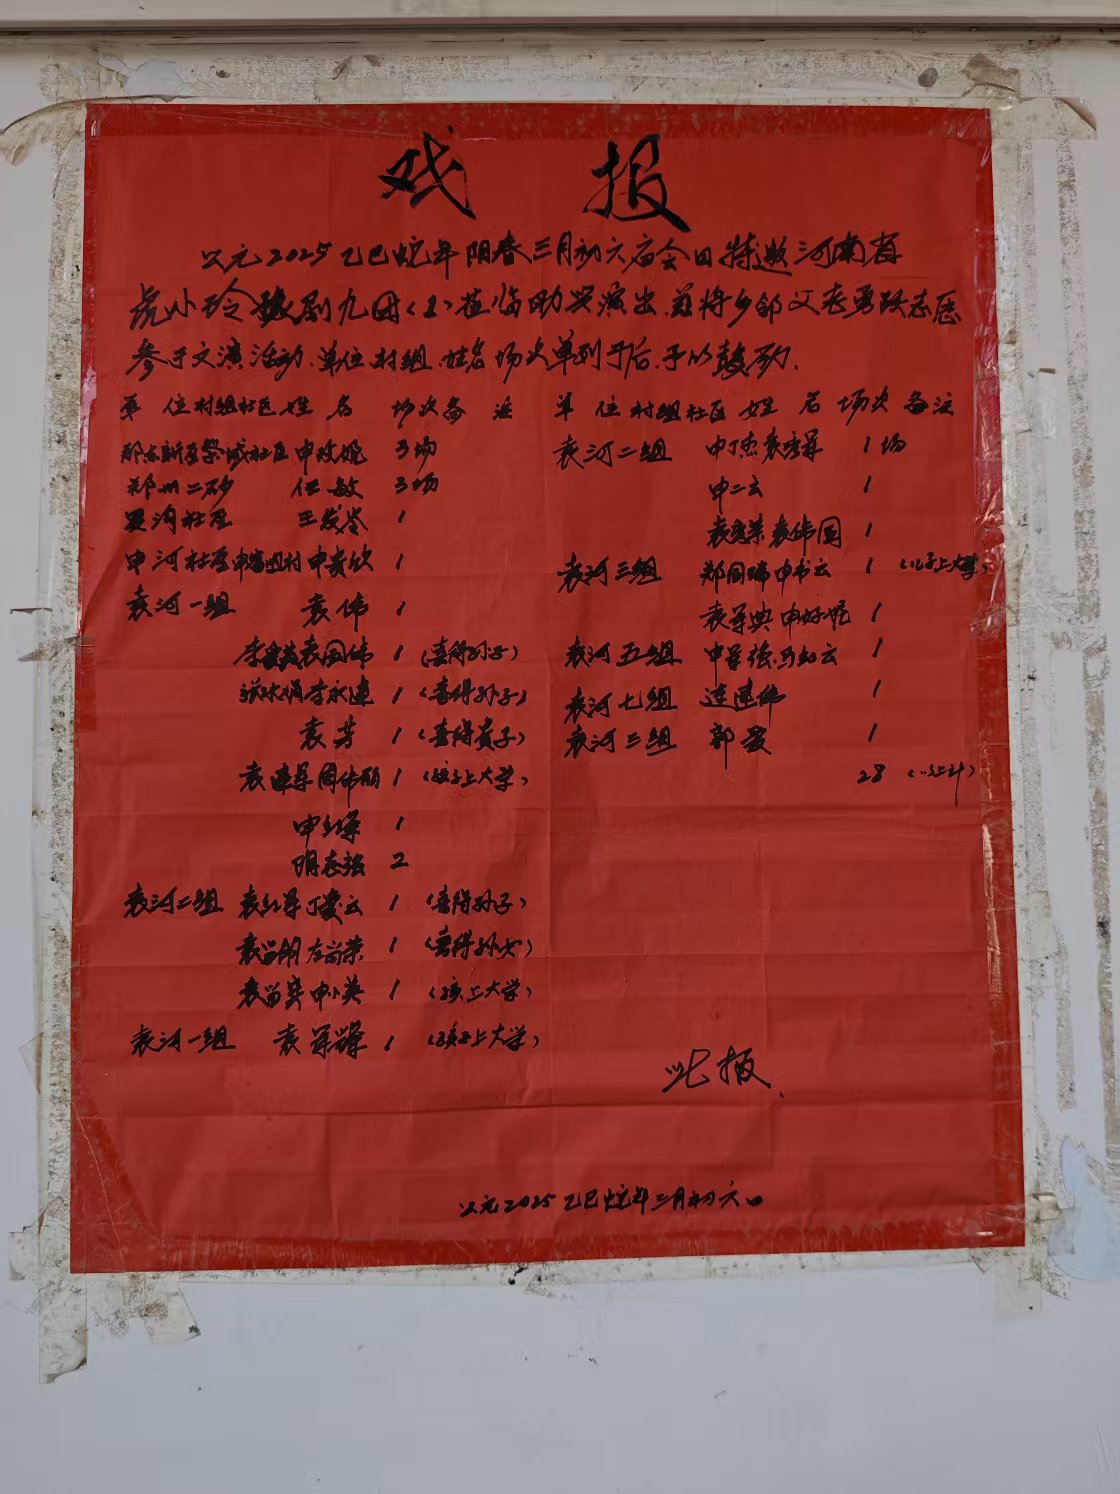 戏 报
公元2025乙巳蛇年阳春三月初六庙会日特邀河南省
虎小玲豫剧九团(1)莅临助兴演出.兹将乡邻父老勇跃志愿
参于文演活动.单位村组.姓名场次单列于后.予以鼓励.
单 位村组社区 姓 名 场次 备 注
社区 3场
郑州二砂 任敏 3场
社区 王发 1
申河社区 村 申 1
袁河一组 袁伟 1
袁国伟 1 (喜得孙子)
李 1 (喜得孙子)
袁芳 1 (喜得贵子)
袁 军周伟丽 1 (孩子上大学)
申红军 1
明志强 2
袁河二组 袁红军丁爱云 1 (喜得孙子)
袁留明 荣 1 (喜得孙女)
袁留 申小英 1 (孩上大学)
袁河一组 袁军 1 (孩子上大学)
单 位村组社区 姓 名 场次 备注
袁河二组 申丁杰袁 军 1场
申二云 1
袁 荣袁伟国 1
袁河三组 郑国瑞申书云 1 (儿子上大学)
袁军典 申好妮 1
袁河五组 申军 马 云 1
袁河七组 连建伟 1
袁河三组 郭 1
28 (以上计)
此报.
公元2025乙巳蛇年三月初六日